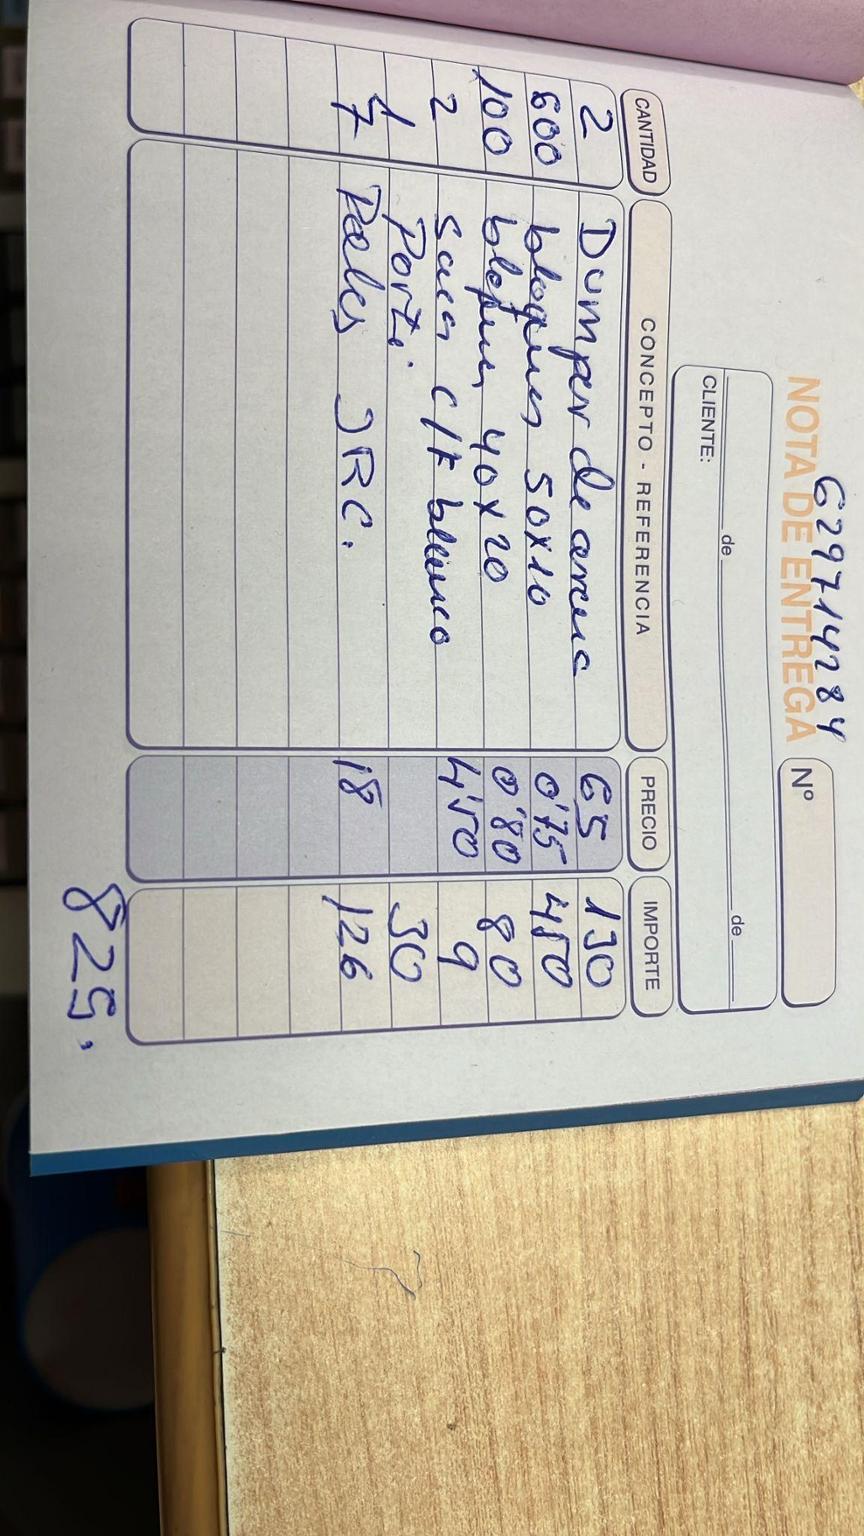 629714284
NOTA DE ENTREGA Nº
de de
CLIENTE:
CANTIDAD CONCEPTO - REFERENCIA PRECIO IMPORTE
2 Dumper de arena 65 130
600 bloques 50x10 0'75 450
100 bloques 40x20 0'80 80
2 sacos c/k blanco 4'50 9
1 Porti. 30
7 Palés JRC. 18 126
825.